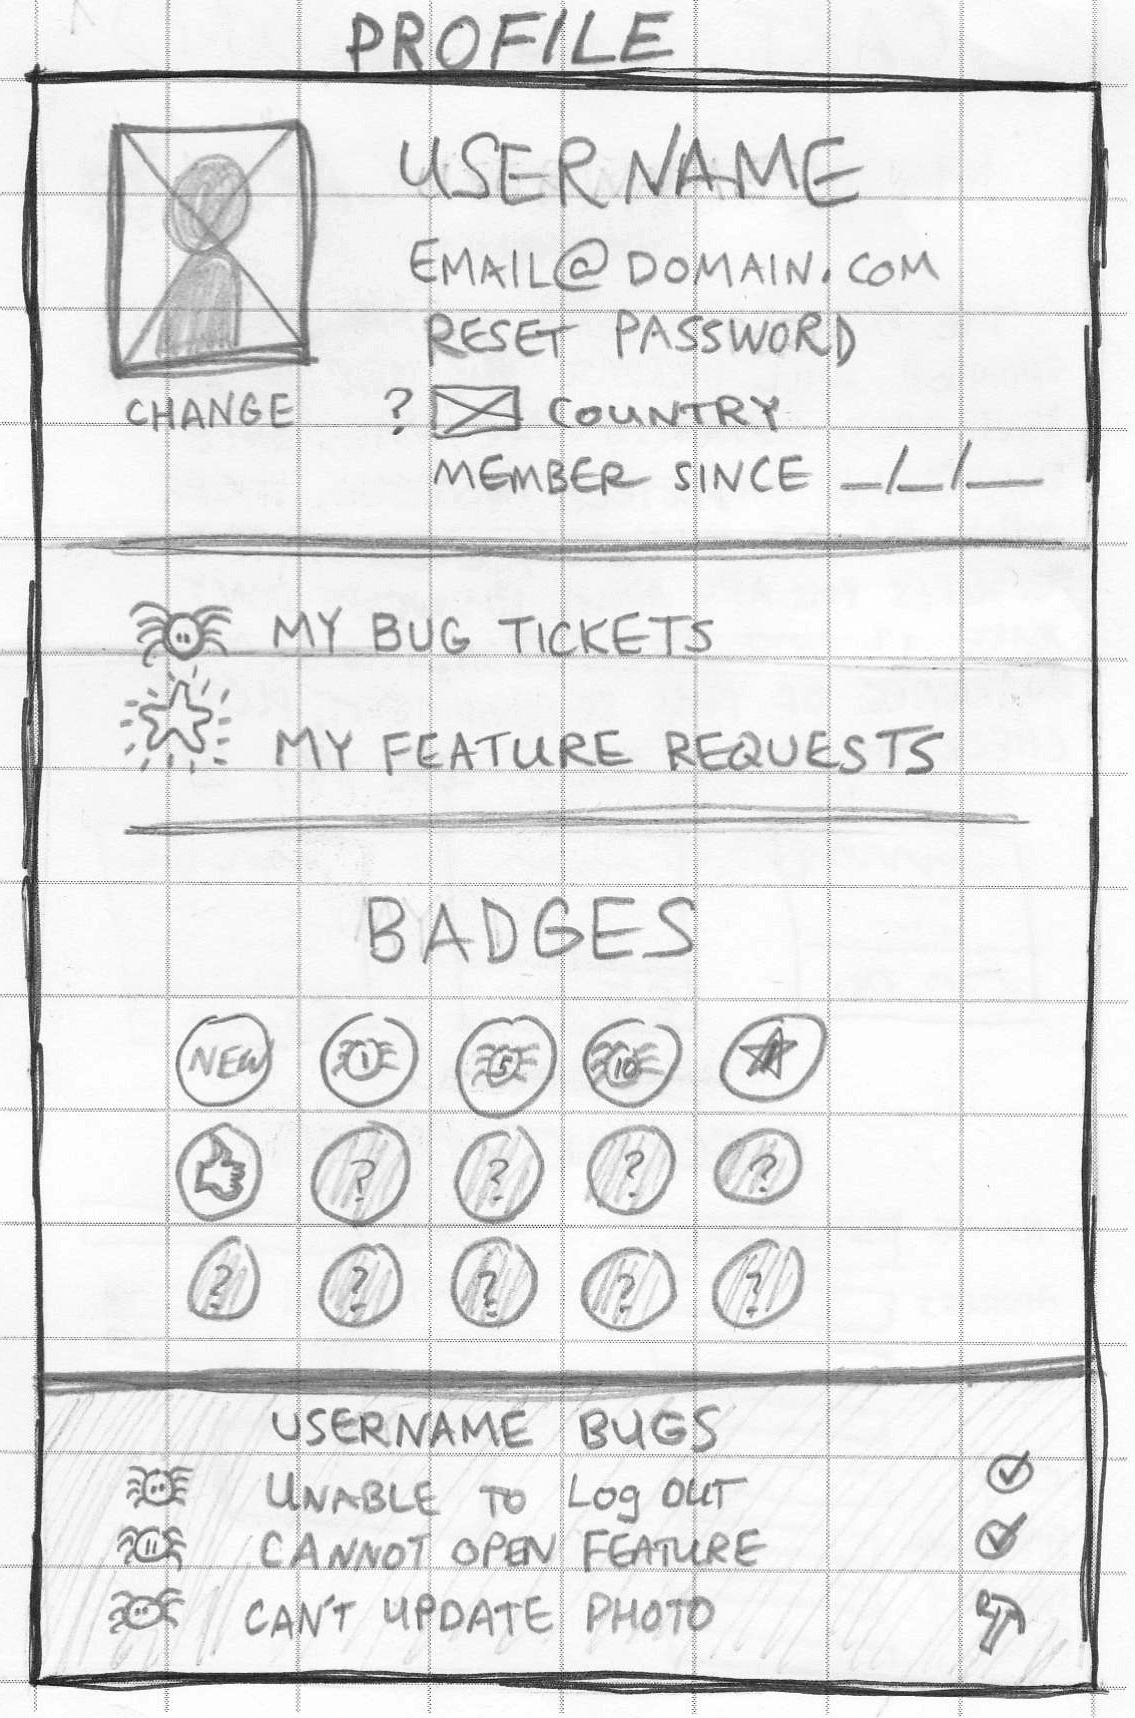 PROFILE
USERNAME
EMAIL@DOMAIN.COM
RESET PASSWORD
CHANGE
? COUNTRY
MEMBER SINCE _/_/_
MY BUG TICKETS
MY FEATURE REQUESTS
BADGES
NEW 1 5 10
? ? ? ?
? ? ? ? ?
USERNAME BUGS
UNABLE TO Log OUT
CANNOT OPEN FEATURE
CAN'T UPDATE PHOTO